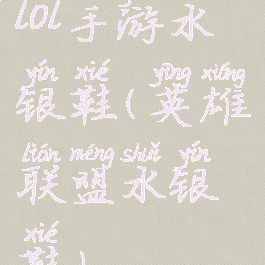 lol手游水
yín xié yīng xióng
银鞋(英雄
lián méng shuǐ yín
联盟水银
xié
鞋)